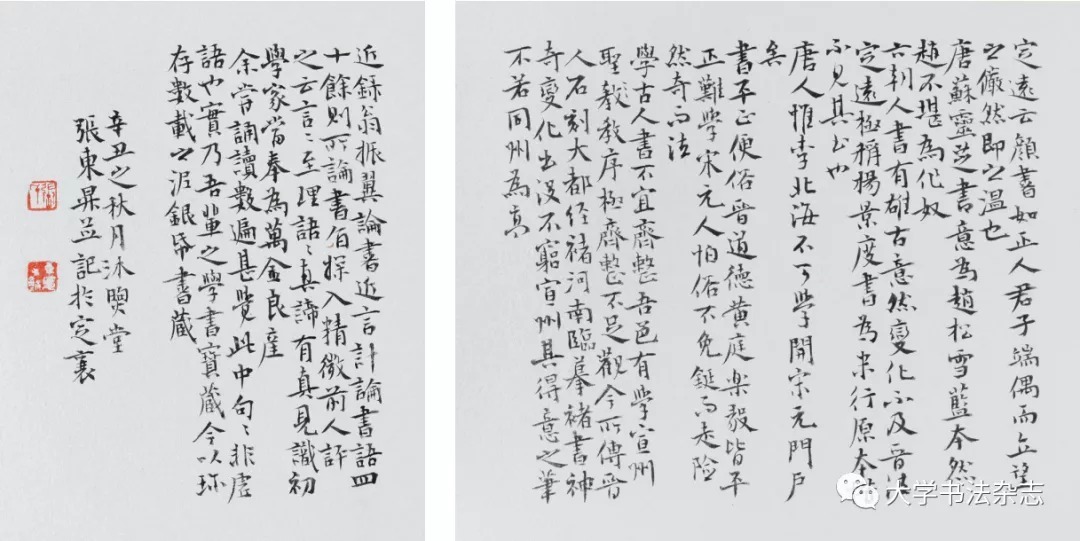 定遠云顔書如正人君子端偶而立望
之儼然即之温也
唐蘇靈芝書意為趙松雪藍本然
趙不堪為化奴
六朝人書有雄古意然變化不及晉
定遠極稱楊景度書為宋行原本
不見其書也
唐人惟李北海不可學開宋元門戶
矣
書平正便俗晉道德黄庭樂毅皆平
正難學宋元人怕俗不免鋌而走险
然奇而法
學古人書不宜齊整吾邑有學宣州
聖教教序極齊整不足觀今所傳晉
人石刻大都经褚河南臨摹褚書神
奇變化出没不窮宣州具得意之筆
不若同州為真
近錄翁振翼論書近言計論書語四
十餘則所論書俱探入精微前人評
之云言言至理語語真諦有真見識初
學家當奉為萬金良産
余嘗誦讀數遍甚覺此中句句非虚
語也實乃吾輩之學書寶藏今以珎
存數載之泥銀帋書藏
辛丑之秋月沐煦堂
張東昇並記於定襄
大学书法杂志